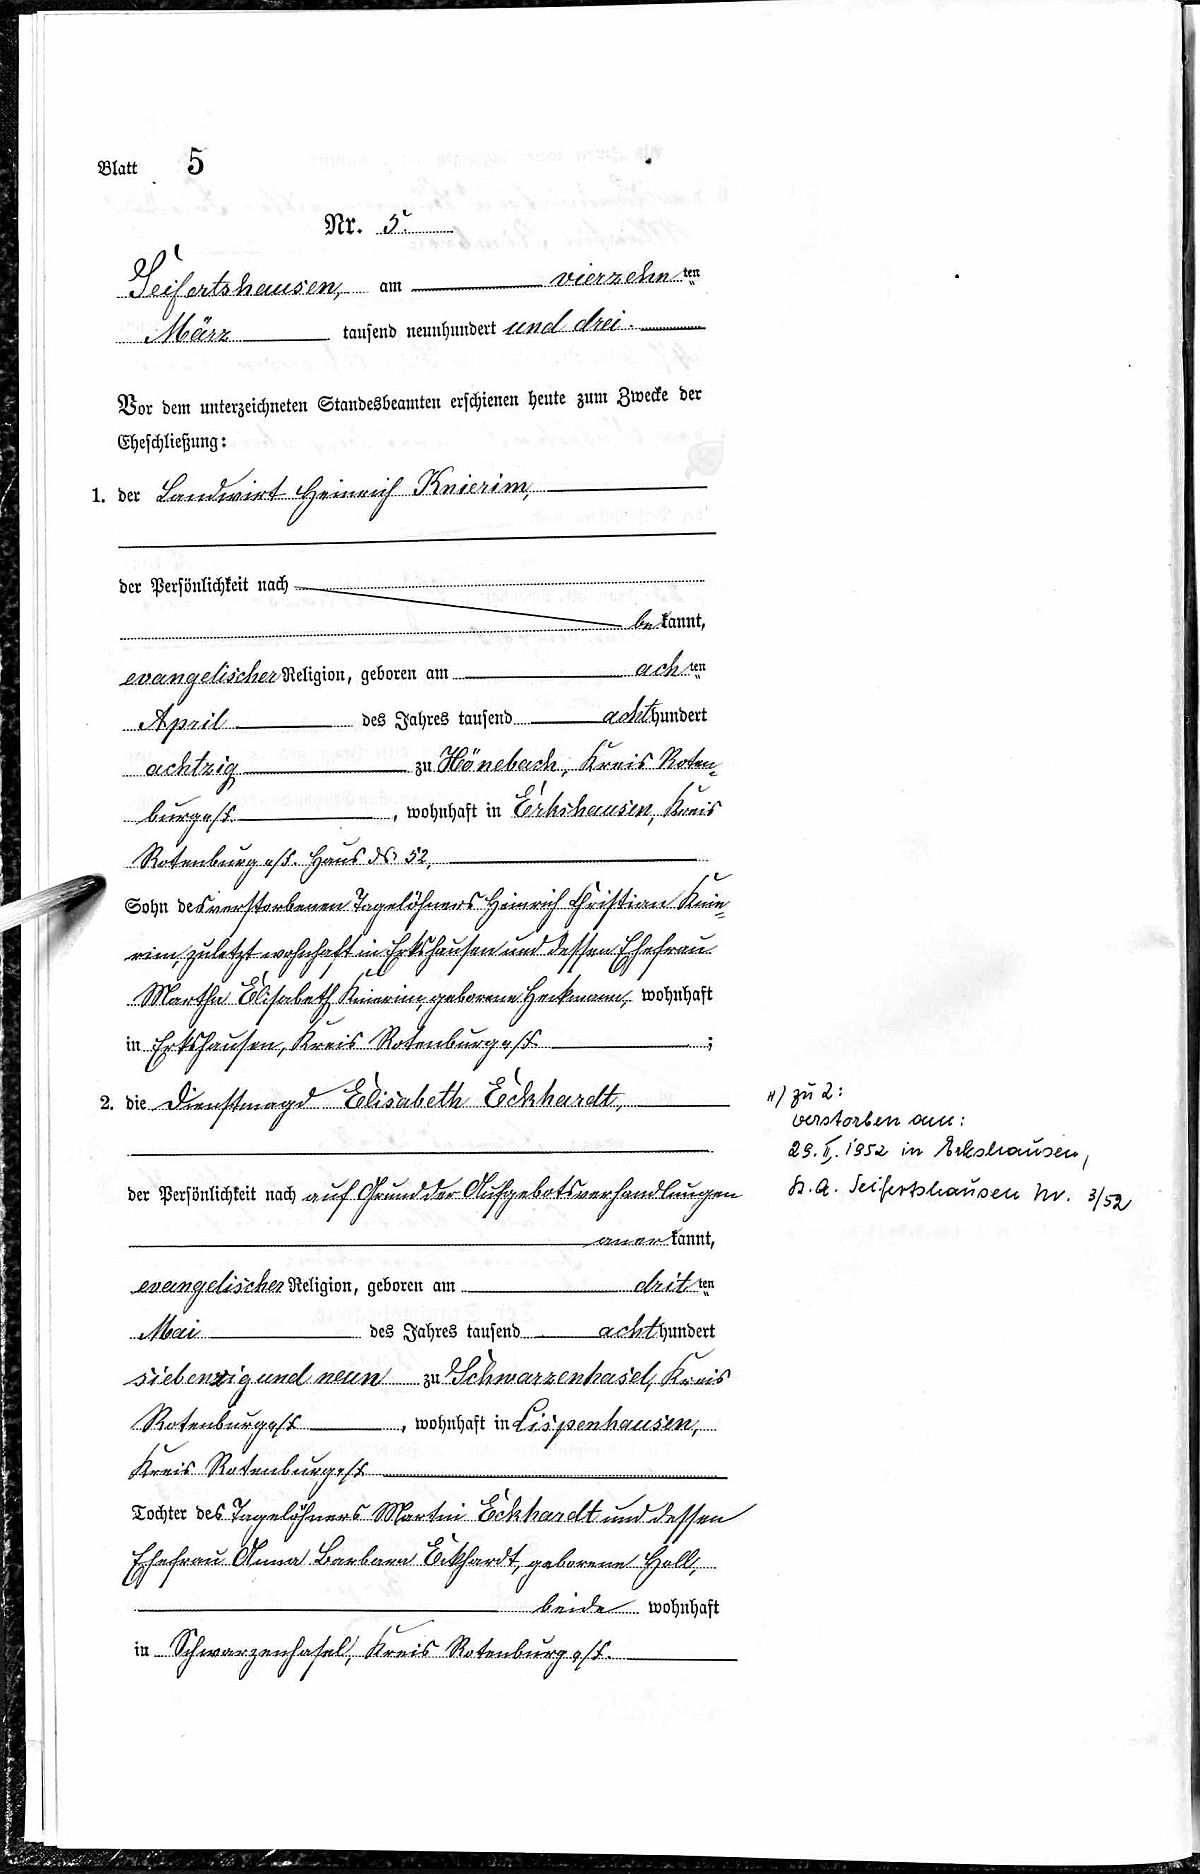 Blatt 5
Nr. 5.
Seifertshausen, am vierzehn ten
März tausend neunhundert und drei.
Vor dem unterzeichneten Standesbeamten erschienen heute zum Zwecke der
Eheschließung:
1. der Landwirt Heinrich Knierim,
der Persönlichkeit nach
bekannt,
evangelischer Religion, geboren am ach ten
April des Jahres tausend achthundert
achtzig zu Hönebach, Kreis Roten-
burg a/F. , wohnhaft in Erkshausen, Kreis
Rotenburg a/F. Haus No 52,
Sohn des verstorbenen Tagelöhners Heinrich Christian Knie-
rim, zuletzt wohnhaft in Erkshausen und dessen Ehefrau
Martha Elisabeth Knierim, geborene Heckmann, wohnhaft
in Erkshausen, Kreis Rotenburg a/F. ;
2. die Dienstmagd Elisabeth Eckhardt,
der Persönlichkeit nach auf Grund der Aufgebotsverhandlungen
anerkannt,
evangelischer Religion, geboren am drit ten
Mai des Jahres tausend achthundert
siebenzig und neun zu Schwarzenhasel, Kreis
Rotenburg a/F. , wohnhaft in Lispenhausen,
Kreis Rotenburg a/F.
Tochter des Tagelöhners Martin Eckhardt und dessen
Ehefrau Anna Barbara Eckhardt, geborene Holl,
beide wohnhaft
in Schwarzenhasel, Kreis Rotenburg a/F.
zu 2:
verstorben am:
29. II. 1952 in Erkshausen,
St. A. Seifertshausen Nr. 3/52